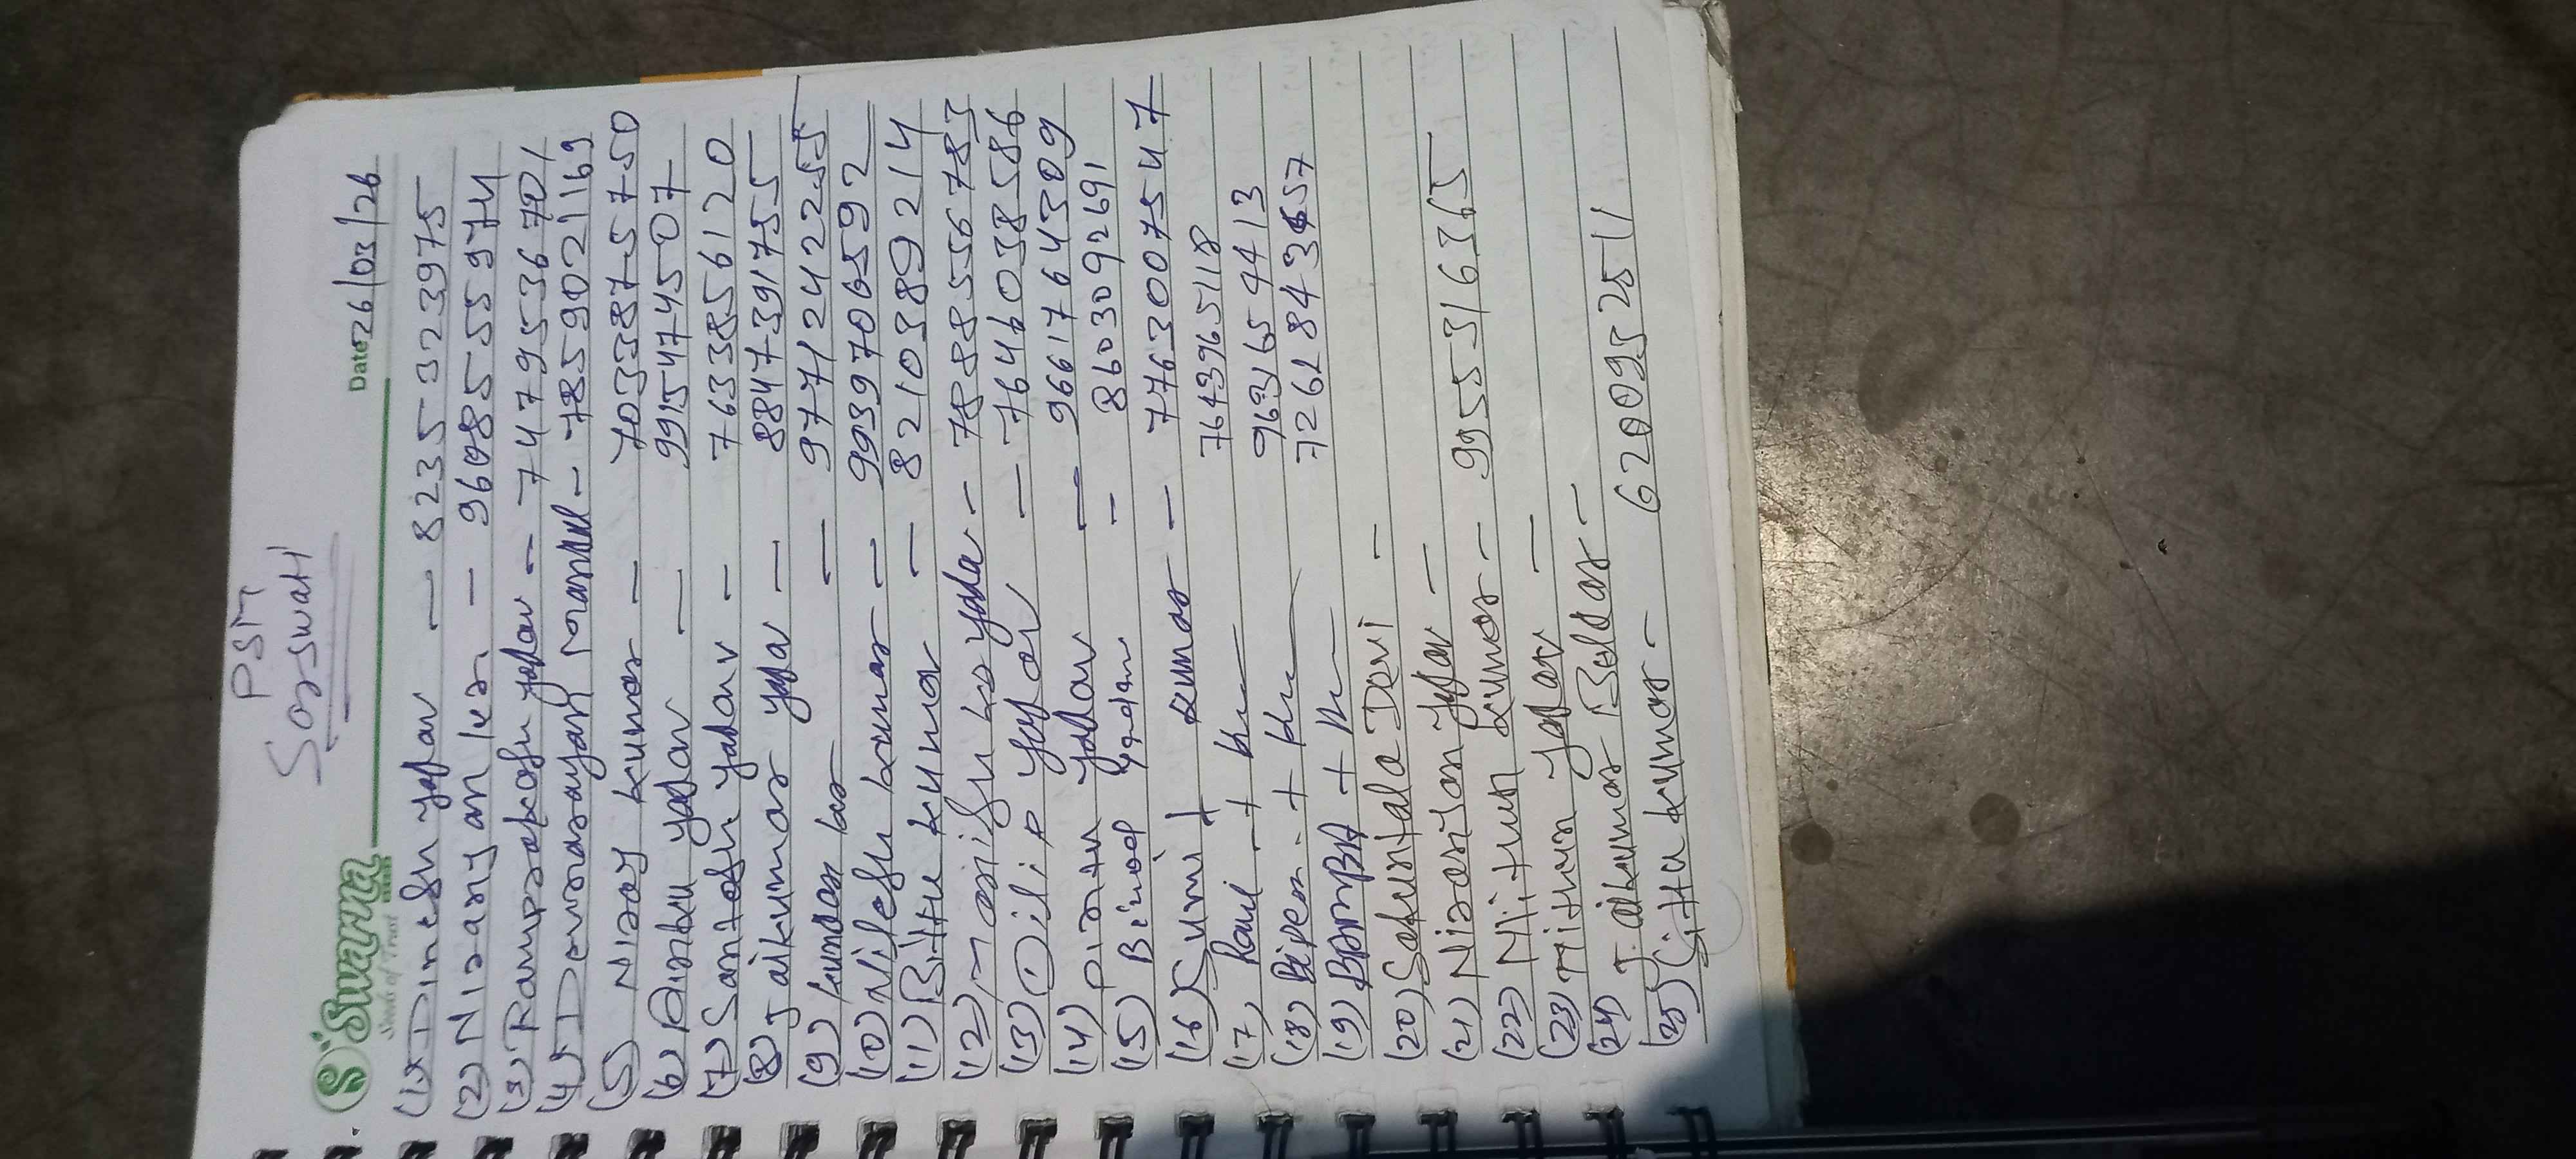 PSM
Sarswati
Swarna
Seeds of Trust
Date 26/03/26
(1) Dinesh yadav — 8235323975
(2) Niranjan kr. — 9608555974
(3) Ramprakash yadav — 7479536701
(4) Devnarayan mandal - 7859021169
(5) Niraj kumar — 7033875750
(6) yadav — 9915474507
(7) Santosh yadav — 7633856120
(8) Jaikumar yadav — 8847391755
(9) kundan kr — 9771242255
(10) Nilesh kumar — 9939706592
(11) Bittu kumar — 8210389214
(12) Manish kr yadav - 7888556783
(13) Dilip yadav — 7646038586
(14) Pintu yadav — 9661764309
(15) Binod yadav - 8603092691
(16) Sumit kumar — 7763007547
(17) + ku 7643965118
(18) + ku 9631654413
(19) + ku
(20) Sakuntala Devi —
(21) Niranjan yadav — 9955316365
(22) Mithun kumar —
(23) Mithun yadav —
(24) Jaikumar Beldar —
(25) Situ kumar - 6200932511